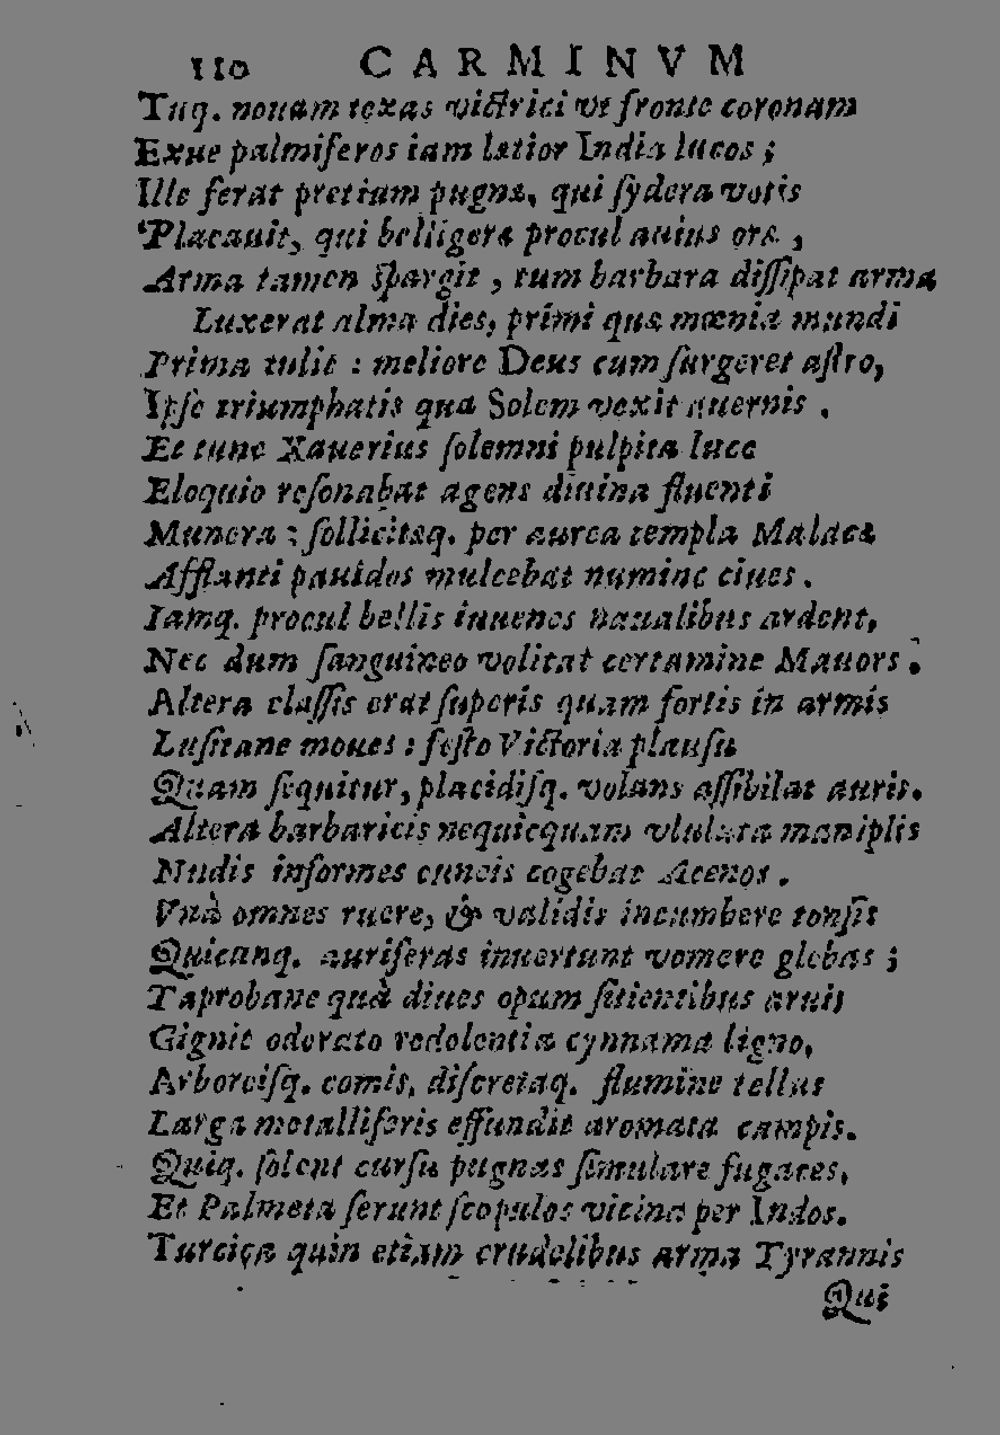 110 CARMINVM
Tuq. nouam texas victrici vt fronte coronam
Exue palmiferos iam lætior India lucos ;
Ille ferat pretium pugnæ, qui ſydera votis
Placauit, qui belligera procul auius ora ,
Arma tamen ſpargit , tum barbara diſſipat arma
Luxerat alma dies, primi quæ mœnia mundi
Prima tulit : meliore Deus cum ſurgeret aſtro,
Ipſe triumphatis qua Solem vexit auernis .
Et tunc Xauerius ſolemni pulpita luce
Eloquio reſonabat agens diuina fluenti
Munera ; ſollicitæq. per aurea templa Malacæ
Afflanti pauidos mulcebat numine ciues .
Iamq. procul bellis iuuenes naualibus ardent,
Nec dum ſanguineo volitat certamine Mauors .
Altera claſſis erat ſuperis quam fortis in armis
Luſitane moues : feſto Victoria plauſu
Quam ſequitur, placidiſq. volans aſſibilat auris.
Altera barbaricis nequicquam vlulata maniplis
Nudis informes cuneis cogebat Acenos .
Vnà omnes ruere, & validis incumbere tonſis
Quicanq. auriferas inuertunt vomere glebas ;
Taprobane quà diues opum ſitientibus aruis
Gignit odorato redolentia cynnama ligno,
Arboreiſq. comis, diſcretaq. flumine tellus
Larga metalliferis effundit aromata campis.
Quiq. ſolent curſu pugnas ſimulare fugaces,
Et Palmeta ferunt ſcopulos vicina per Indos.
Turcica quin etiam crudelibus arma Tyrannis
Qui